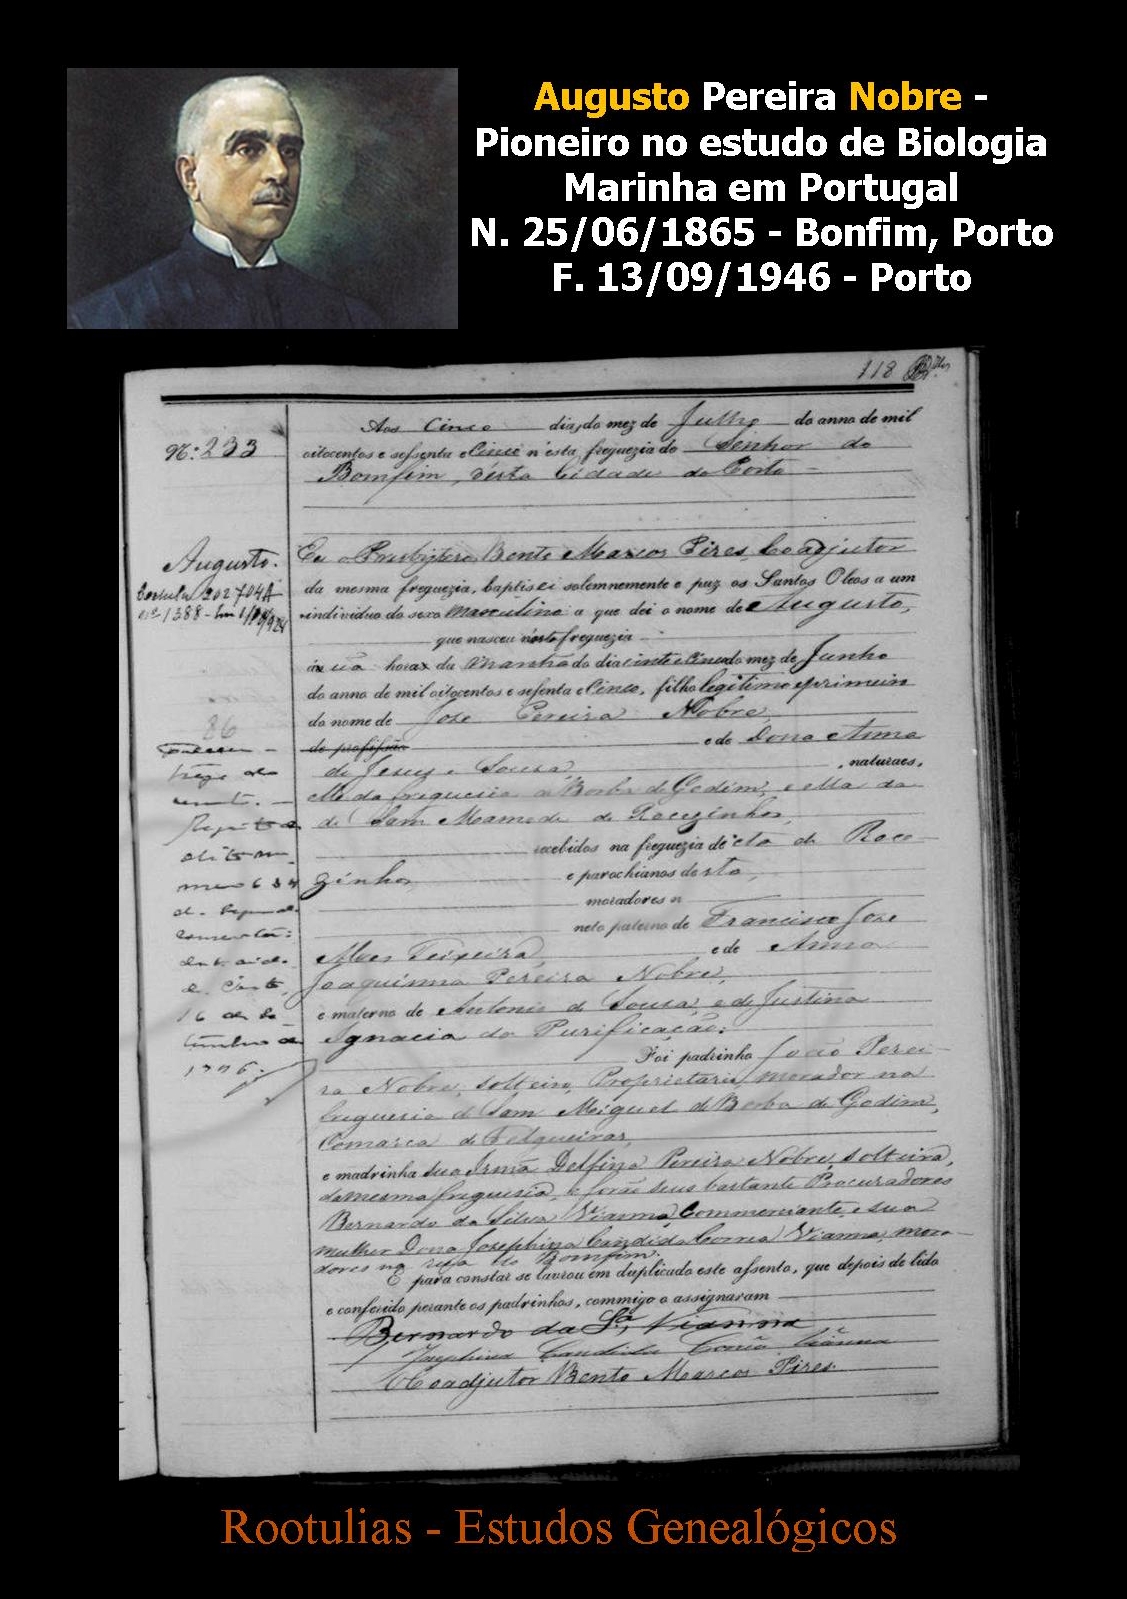 Augusto Pereira Nobre -
Pioneiro no estudo de Biologia
Marinha em Portugal
N. 25/06/1865 - Bonfim, Porto
F. 13/09/1946 - Porto
118
Nº: 233
Aos Cinco dias do mez de Julho do anno de mil
oitocentos e sessenta e Cinco n'esta freguezia do Senhor do
Bomfim, d'esta Cidade do Porto
Augusto.
Eu o Presbytero Bento Marcos Pires, Coadjutor
da mesma freguezia, baptisei solemnemente e puz os Santos Oleos a um
individuo do sexo masculino a que dei o nome de Augusto,
que nasceu nesta freguezia
horas da manhã do dia vinte e Cinco do mez de Junho
do anno de mil oitocentos e sessenta e Cinco, filho legitimo e primeiro
do nome de Joze Pereira Nobre,
de profissão e de Dona Anna
de Jesus e Souza, naturaes,
elle da freguezia de Borba de Godim, e ella da
de Sam Mamede de Recezinhos,
recebidos na freguezia de
zinhos e parochianos desta,
moradores n
neto paterno de Francisco Joze
Alves Teixeira, e de Anna
Joaquinna Pereira Nobre,
e materno de Antonio de Souza, e de Justina
Ignacia da Purificação.
Foi padrinho João Perei-
ra Nobre, solteiro, Proprietario, morador na
freguesia de Sam Miguel de Borba de Godim,
Comarca de Felgueiras,
e madrinha sua Irmã Delfina Pereira Nobre, solteira,
da mesma freguesia, e forão seus bastante Procuradores
Bernardo da Silva Vianna, Commerciante, e sua
mulher Dona Josephina Candida Correa Vianna, mora-
dores na rua do Bomfim.
E para constar se lavrou em duplicado este assento, que depois de lido
e conferido perante os padrinhos, commigo o assignaram
Bernardo da Sª Vianna
Josephina Candida Vianna
O Coadjutor Bento Marcos Pires
Rootulias - Estudos Genealógicos